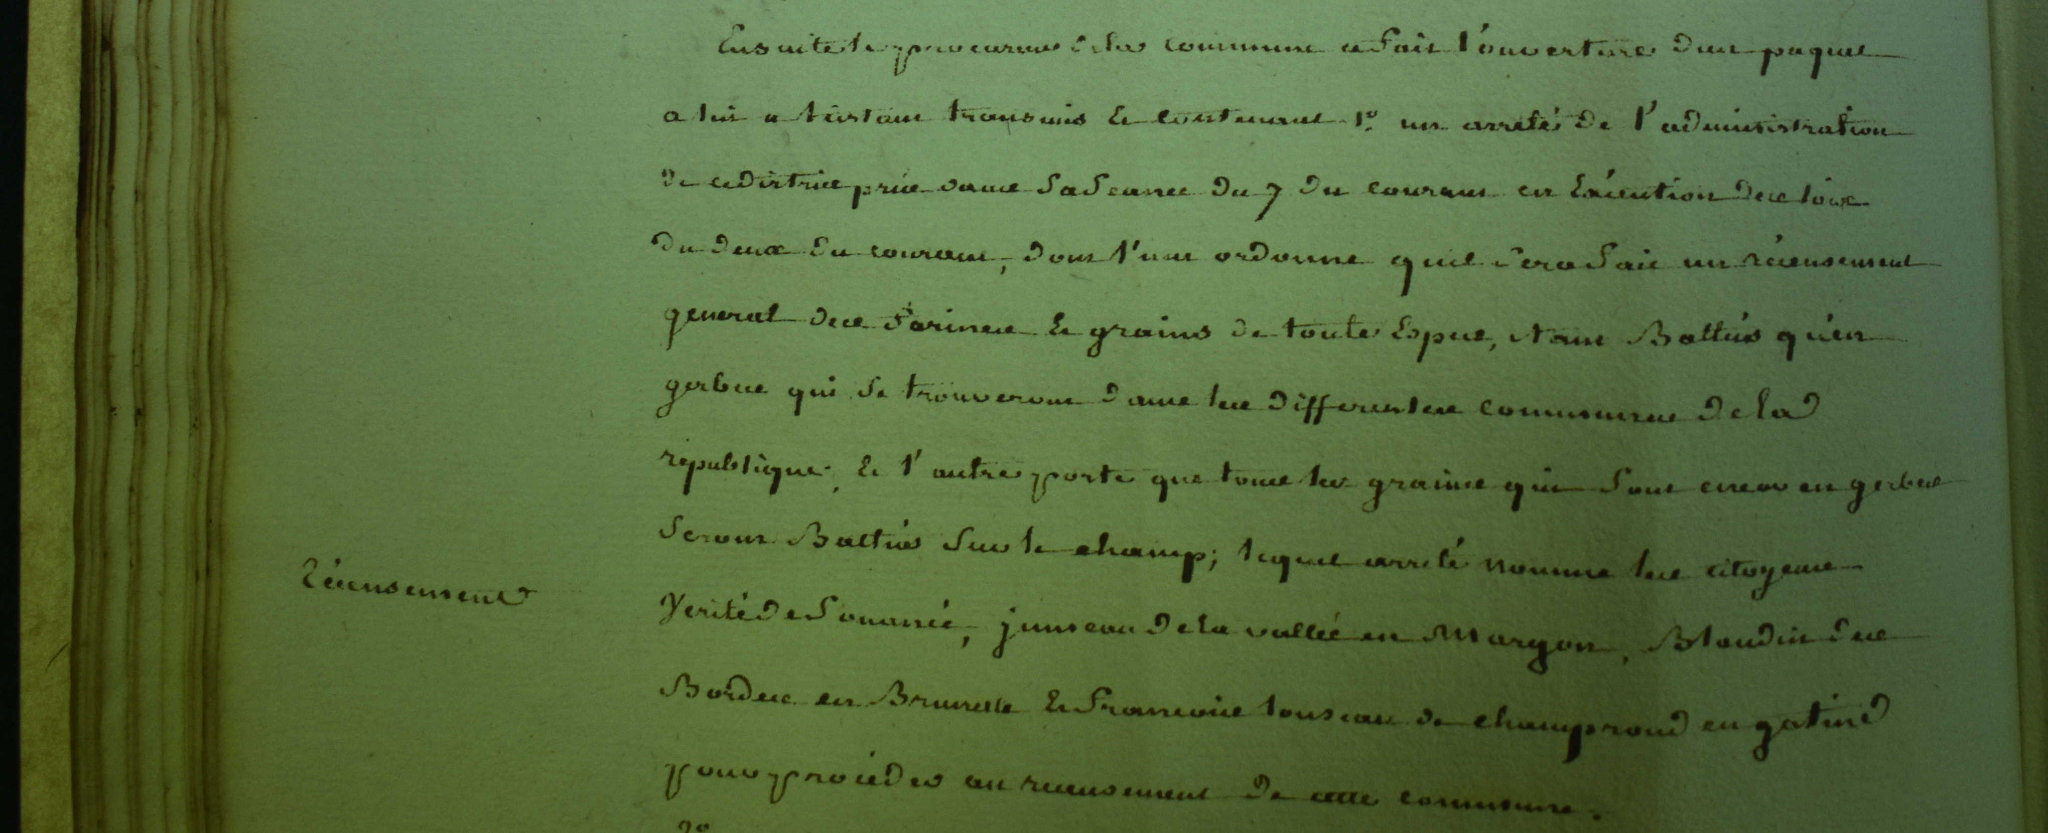 Ensuite le procureur de la commune a fait l'ouverture d'un paquet
a lui a l'instant transmis et contenant 1º un arrêté de l'administration
de ce district prise dans sa séance du 7 du courant en exécution des loix
du deux du courant, dont l'une ordonne qu'il sera fait un récensement
general des farines et grains de toute espece, tant Battus qu'en
gerbes qui se trouveront dans les differentes communes de la
république, et l'autre porte que tous les grains qui sont encor en gerbes
seront Battus sur le champ; lequel arrêté nomme les citoyens
Récensement
Verité de Souancé, juneau de la vallée en Margon, Blandin des
Bordes en Brunelle et francois louseau de champrond en gatine
pour procéder au recensement de cette commune.
2º